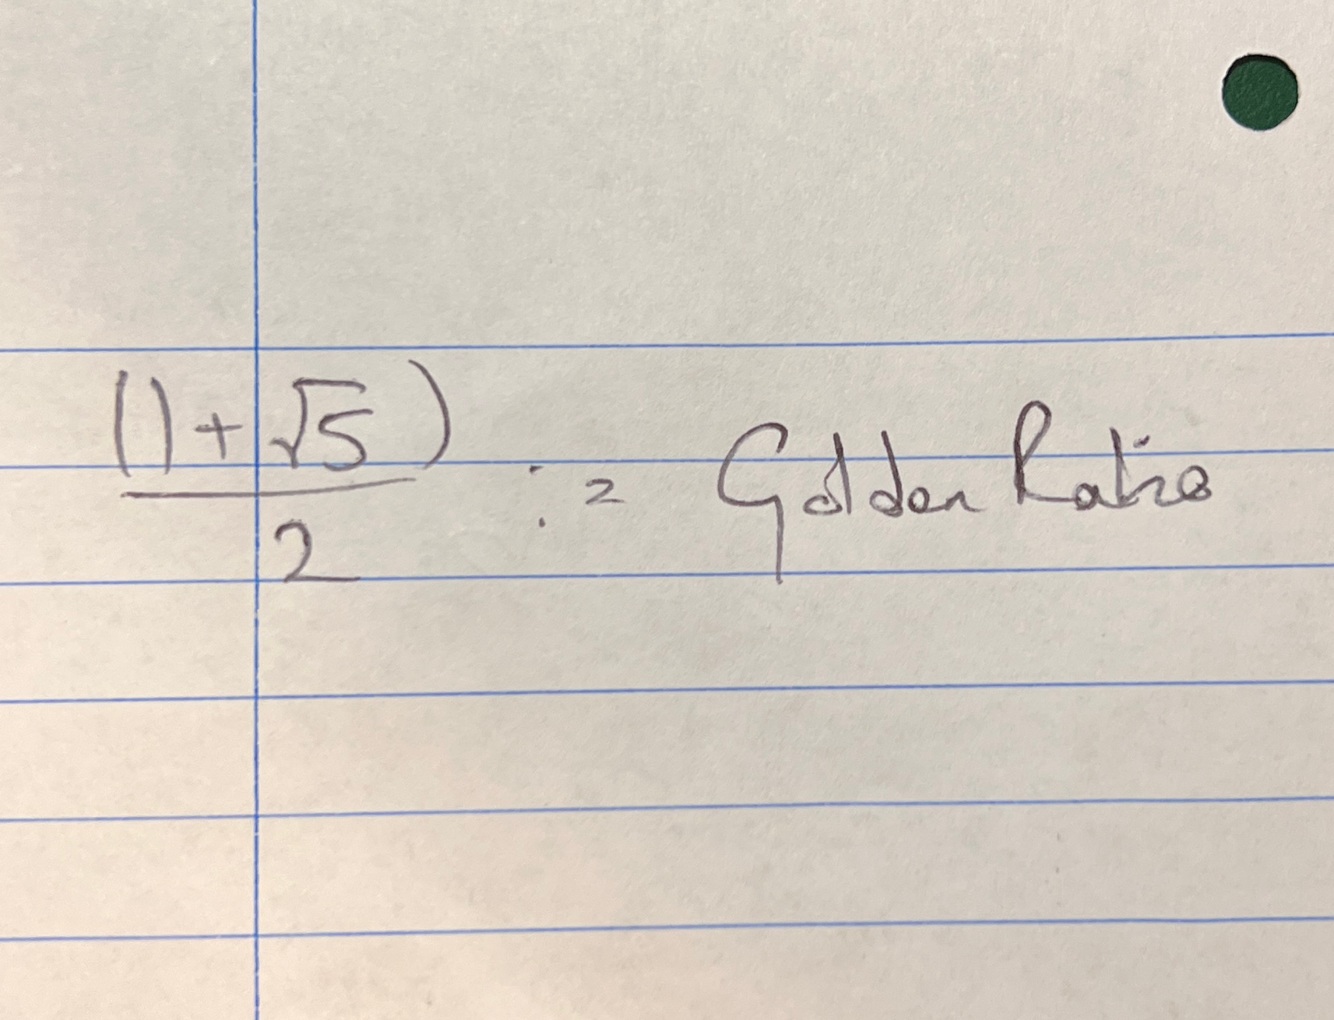 (1+√5)/2 := Golden Ratio